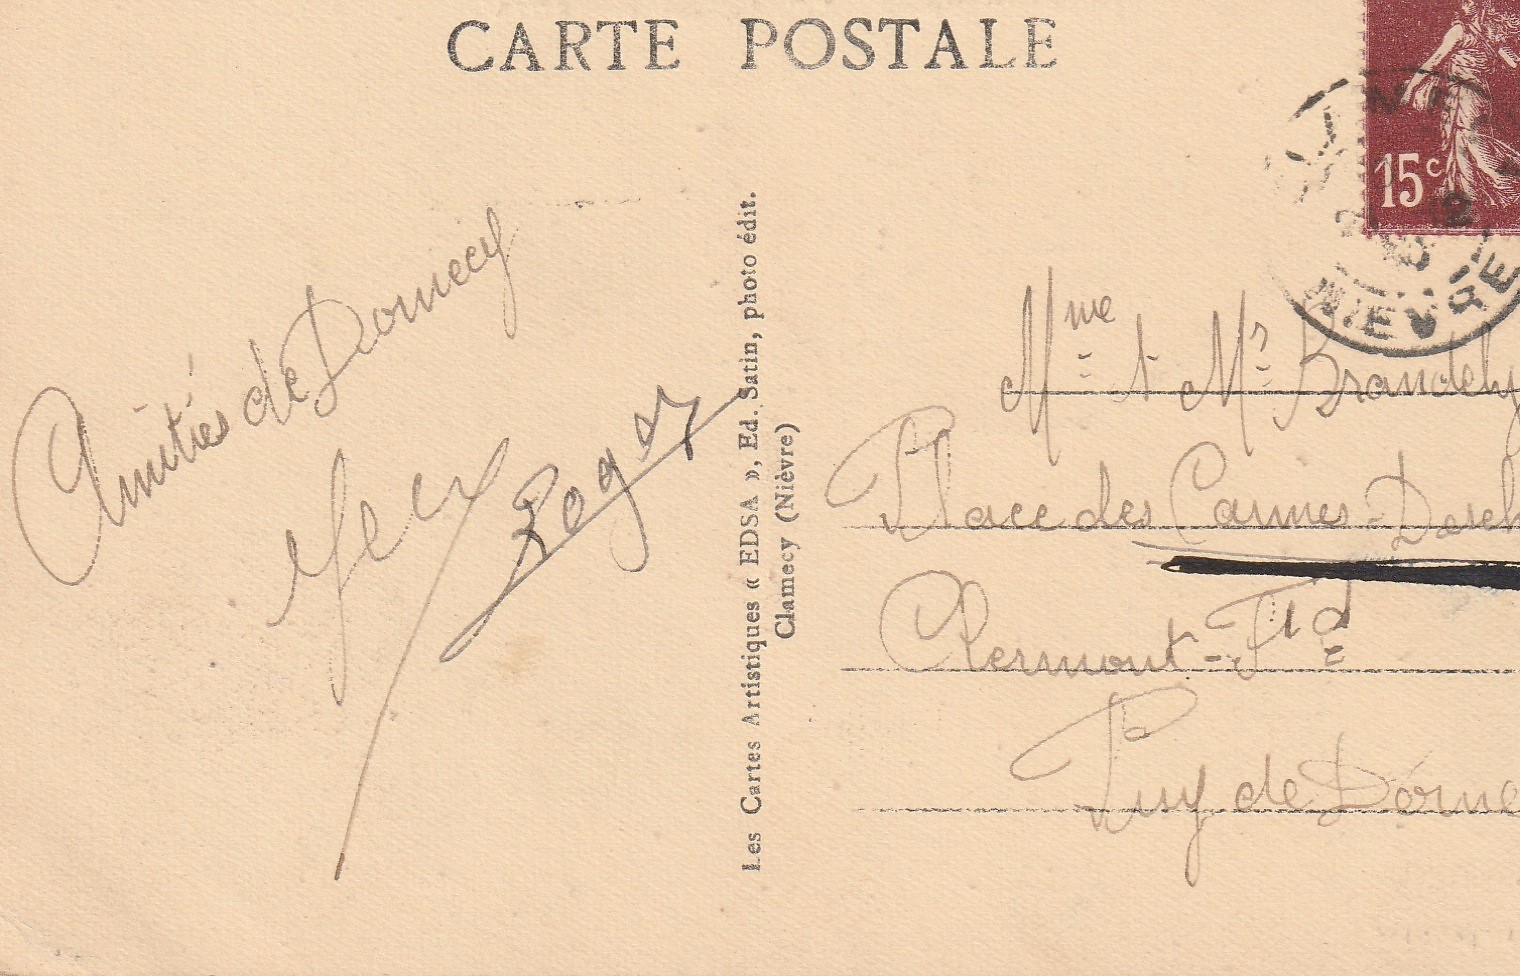 CARTE POSTALE
15c
NIEVRE
Amitiés de Domecy
Roger
Les Cartes Artistiques « EDSA », Ed. Satin, photo édit.
Clamecy (Nièvre)
Mme & Mr
Place des Carmes-Desch
Clermont-Fd
Puy de Dôme